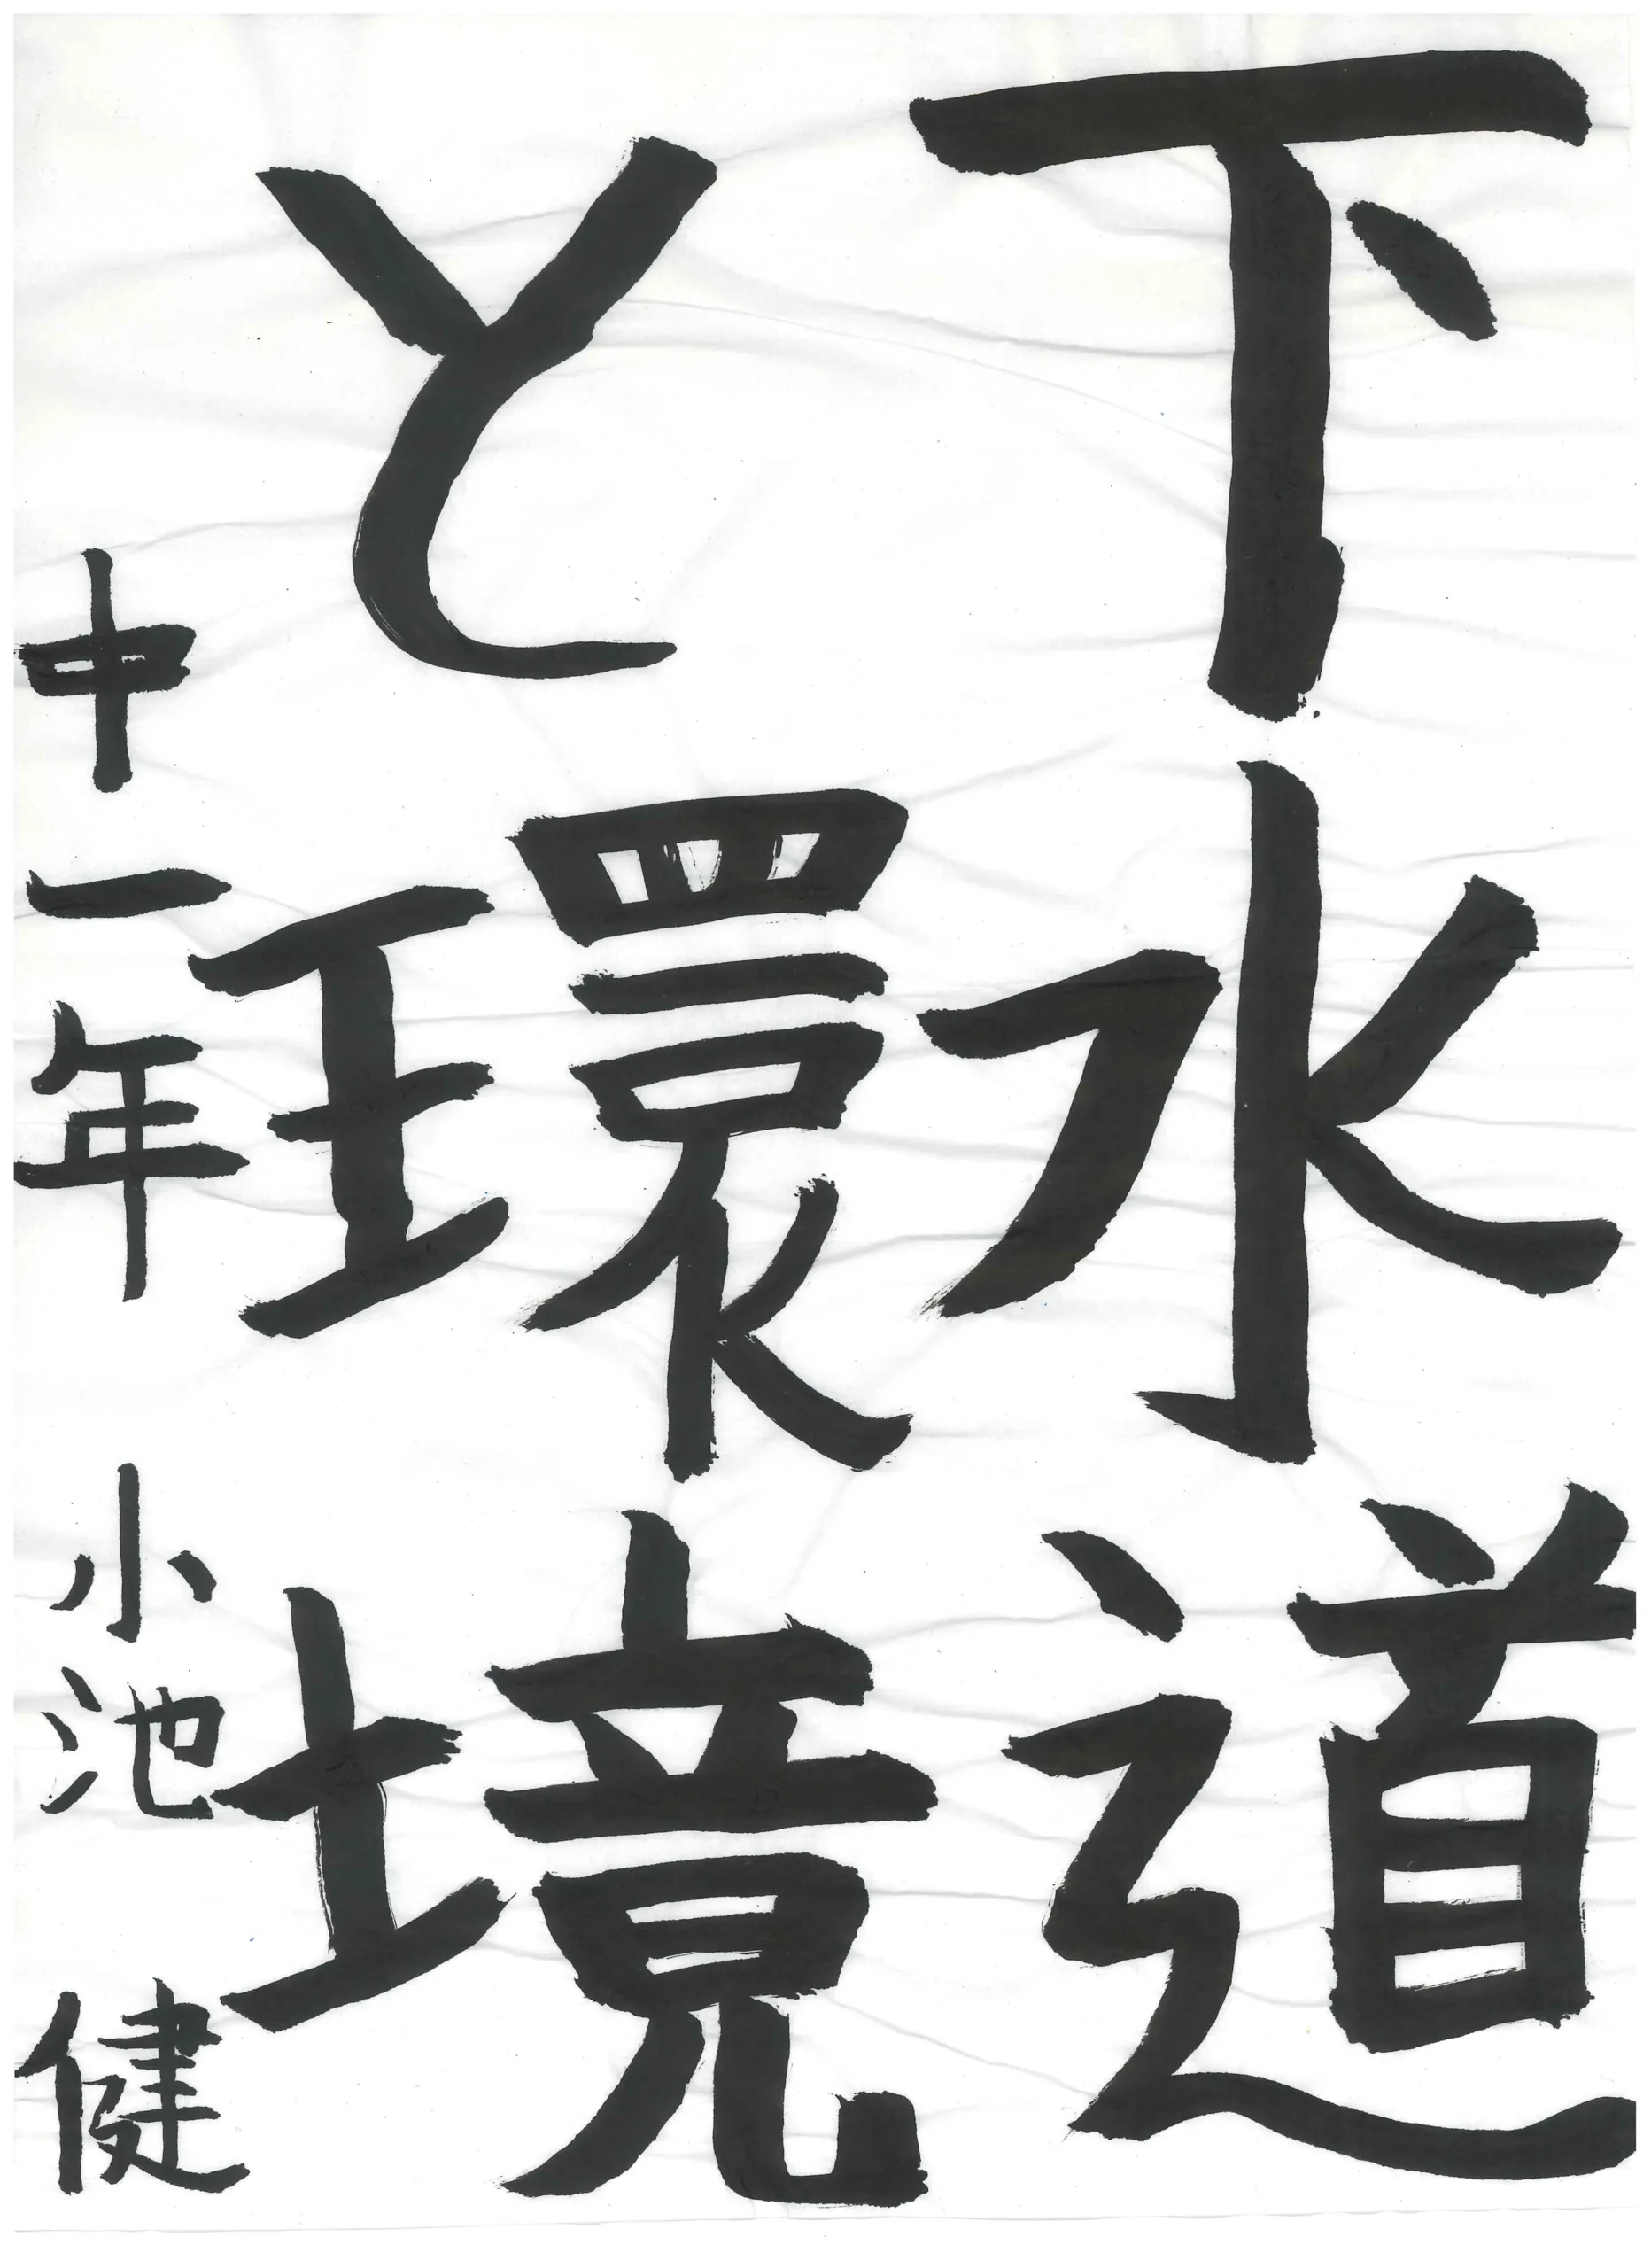 下水道
と環境
中一年 小池 健